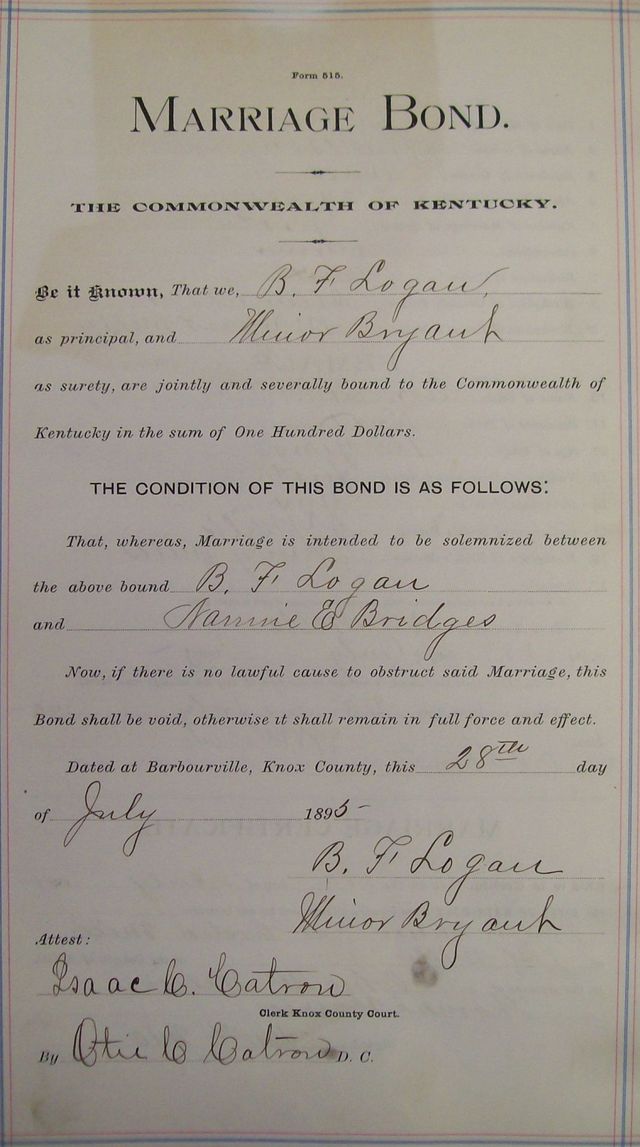 Form 515.
MARRIAGE BOND.
THE COMMONWEALTH OF KENTUCKY.
Be it Known, That we, B. F Logan,
as principal, and Minor Bryant
as surety, are jointly and severally bound to the Commonwealth of
Kentucky in the sum of One Hundred Dollars.
THE CONDITION OF THIS BOND IS AS FOLLOWS:
That, whereas, Marriage is intended to be solemnized between
the above bound B. F Logan
and Nannie E Bridges
Now, if there is no lawful cause to obstruct said Marriage, this
Bond shall be void, otherwise it shall remain in full force and effect.
Dated at Barbourville, Knox County, this 28th day
of July 1895-
B. F Logan
Minor Bryant
Attest:
Isaac C. Catron
Clerk Knox County Court.
By Otie C Catron D. C.